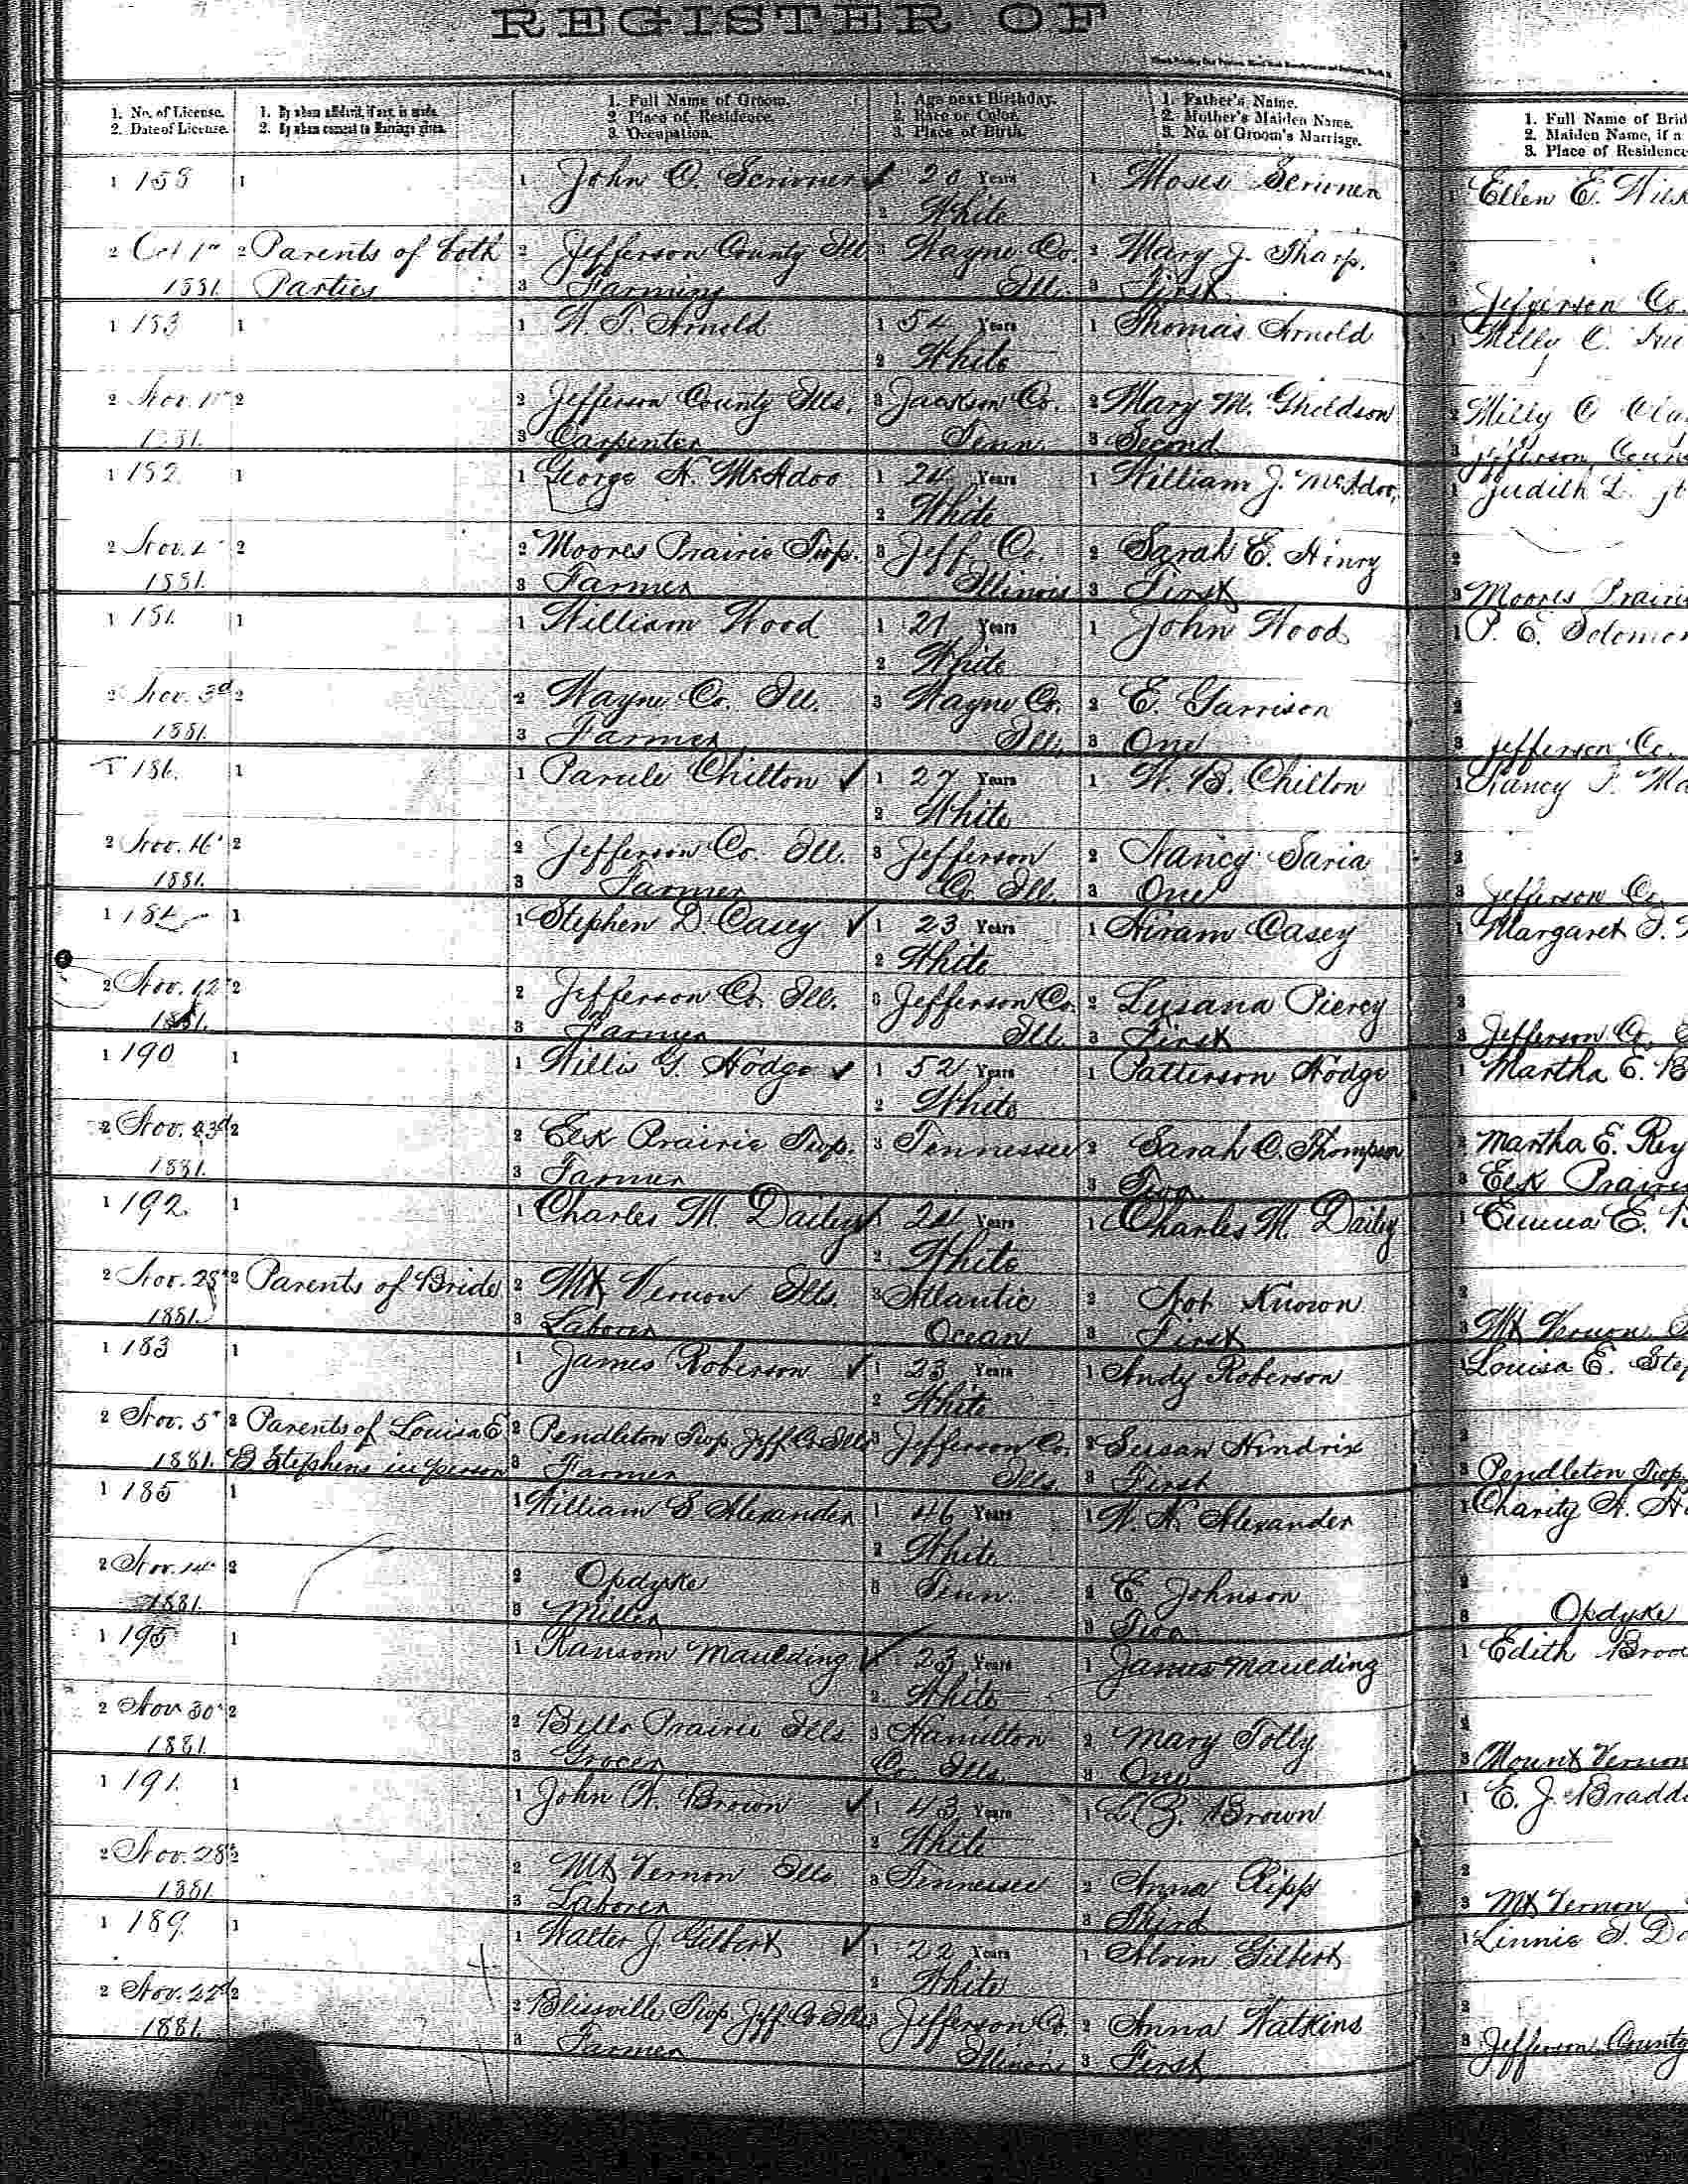 REGISTER OF
1. No. of License.
2. Date of License.
1. By whom affidavit, if any, is made.
2. By whom consent to Marriage given.
1. Full Name of Groom.
2. Place of Residence.
3. Occupation.
1. Age next Birthday.
2. Race or Color.
3. Place of Birth.
1. Father's Name.
2. Mother's Maiden Name.
3. No. of Groom's Marriage.
1. Full Name of Brid
2. Maiden Name, if a
3. Place of Residence
1 158 1 1 John O. Scrivner 20 Years 1 Moses Scrivner Ellen E.
2 White
2 Oct 1st 2 Parents of both 2 Jefferson County Ill. 3 Wayne Co. 2 Mary J. Sharp.
1881. Parties 3 Farming Ill. 3 First. Jefferson Co.
1 1 1 W. T. Arnold 1 54 Years 1 Thomas Arnold Milly C.
2 White
2 Nov. 2 2 Jefferson County Ills. 3 Jackson Co. 2 Mary M. Gholdson 2 Milly C
1881. 3 Carpenter Tenn. 3 Second. Jefferson Coun
1 182 1 1 George N. McAdoo 1 24 Years 1 William J. McAdoo, 1 Judith L.
2 White
2 Nov. 2 2 Moores Prairie Twp. 3 Jeff. Co. 2 Sarah E. Henry 2
1881. 3 Farmer Illinois 3 First 3 Moores Prairie
1 181. 1 1 William Wood 1 21 Years 1 John Wood 1 P. E. Solomon
2 White
2 Nov. 3d 2 2 Wayne Co. Ill. 3 Wayne Co. 2 E. Garrison 2
1881. 3 Farmer Ill. 3 One 3 Jefferson Co.
1 186. 1 1 Chilton 1 27 Years 1 W. B. Chilton 1 Nancy
2 White
2 Nov. 16 2 2 Jefferson Co. Ill. 3 Jefferson 2 Nancy Saria 2
1881. 3 Farmer Co. Ill. 3 One 3 Jefferson Co
1 184 1 1 Stephen D. Casey 1 23 Years 1 Hiram Casey 1 Margaret
2 White
2 Nov. 12 2 2 Jefferson Co. Ill. 3 Jefferson Co. 2 Lusana Piercy 2
1881. 3 Farmer Ill. 3 First 3 Jefferson Co.
1 190 1 1 Willis G. Hodge 1 52 Years 1 Patterson Hodge 1 Martha E. B
2 White
2 Nov. 23d 2 2 Elk Prairie Twp. 3 Tennessee 2 Sarah C. Thompson 2 Martha E. Rey
1881. 3 Farmer 3 Two 3 Elk Prairie
1 192 1 1 Charles M. Dailey 24 Years 1 Charles M. Daily 1 Emma E.
2 White
2 Nov. 28th 2 Parents of Bride 2 Mt. Vernon Ills. 3 Atlantic 2 Not Known 2
1881. 3 Laborer Ocean 3 First 3 Mt Vernon
1 183 1 1 James Roberson 1 23 Years 1 Andy Roberson 1 Louisa E. Step
2 White
2 Nov. 5th 2 Parents of Louisa E 2 Pendleton Twp. Jeff. Co. Ills 3 Jefferson Co. 2 Susan Hindrix 2
1881. B. Stephens in person 3 Farmer Ills. 3 First 3 Pendleton Twp.
1 185 1 1 William S Alexander 1 46 Years 1 W. N. Alexander 1 Charity
2 White
2 Nov. 14th 2 2 Opdyke 3 Tenn. 2 E. Johnson 2
1881. 3 Miller 3 Two 3 Opdyke
1 195 1 1 Ransom Maulding 23 Years 1 James Maulding 1 Edith Broo
2 White
2 Nov 30th 2 2 Bells Prairie Ills. 3 Hamilton 2 Mary Tolly 2
1881. 3 Grocer Co. Ills. 3 One 3 Mount Vernon
1 191. 1 1 John W. Brown 1 43 Years 1 Brown 1 E. J. Bradd
2 White
2 Nov. 28th 2 2 Mt Vernon Ills 3 Tennessee 2 Anna Ripp 2
1881. 3 Laborer 3 Third 3 Mt Vernon
1 189. 1 1 Walter J. Gilbert 1 22 Years 1 Alvin Gilbert 1 Linnie
2 White
2 Nov. 22d 2 2 Blissville Twp. Jeff. Co. Ills 3 Jefferson Co. 2 Anna Watkins 2
1881. 3 Farmer Illinois 3 First 3 Jefferson County